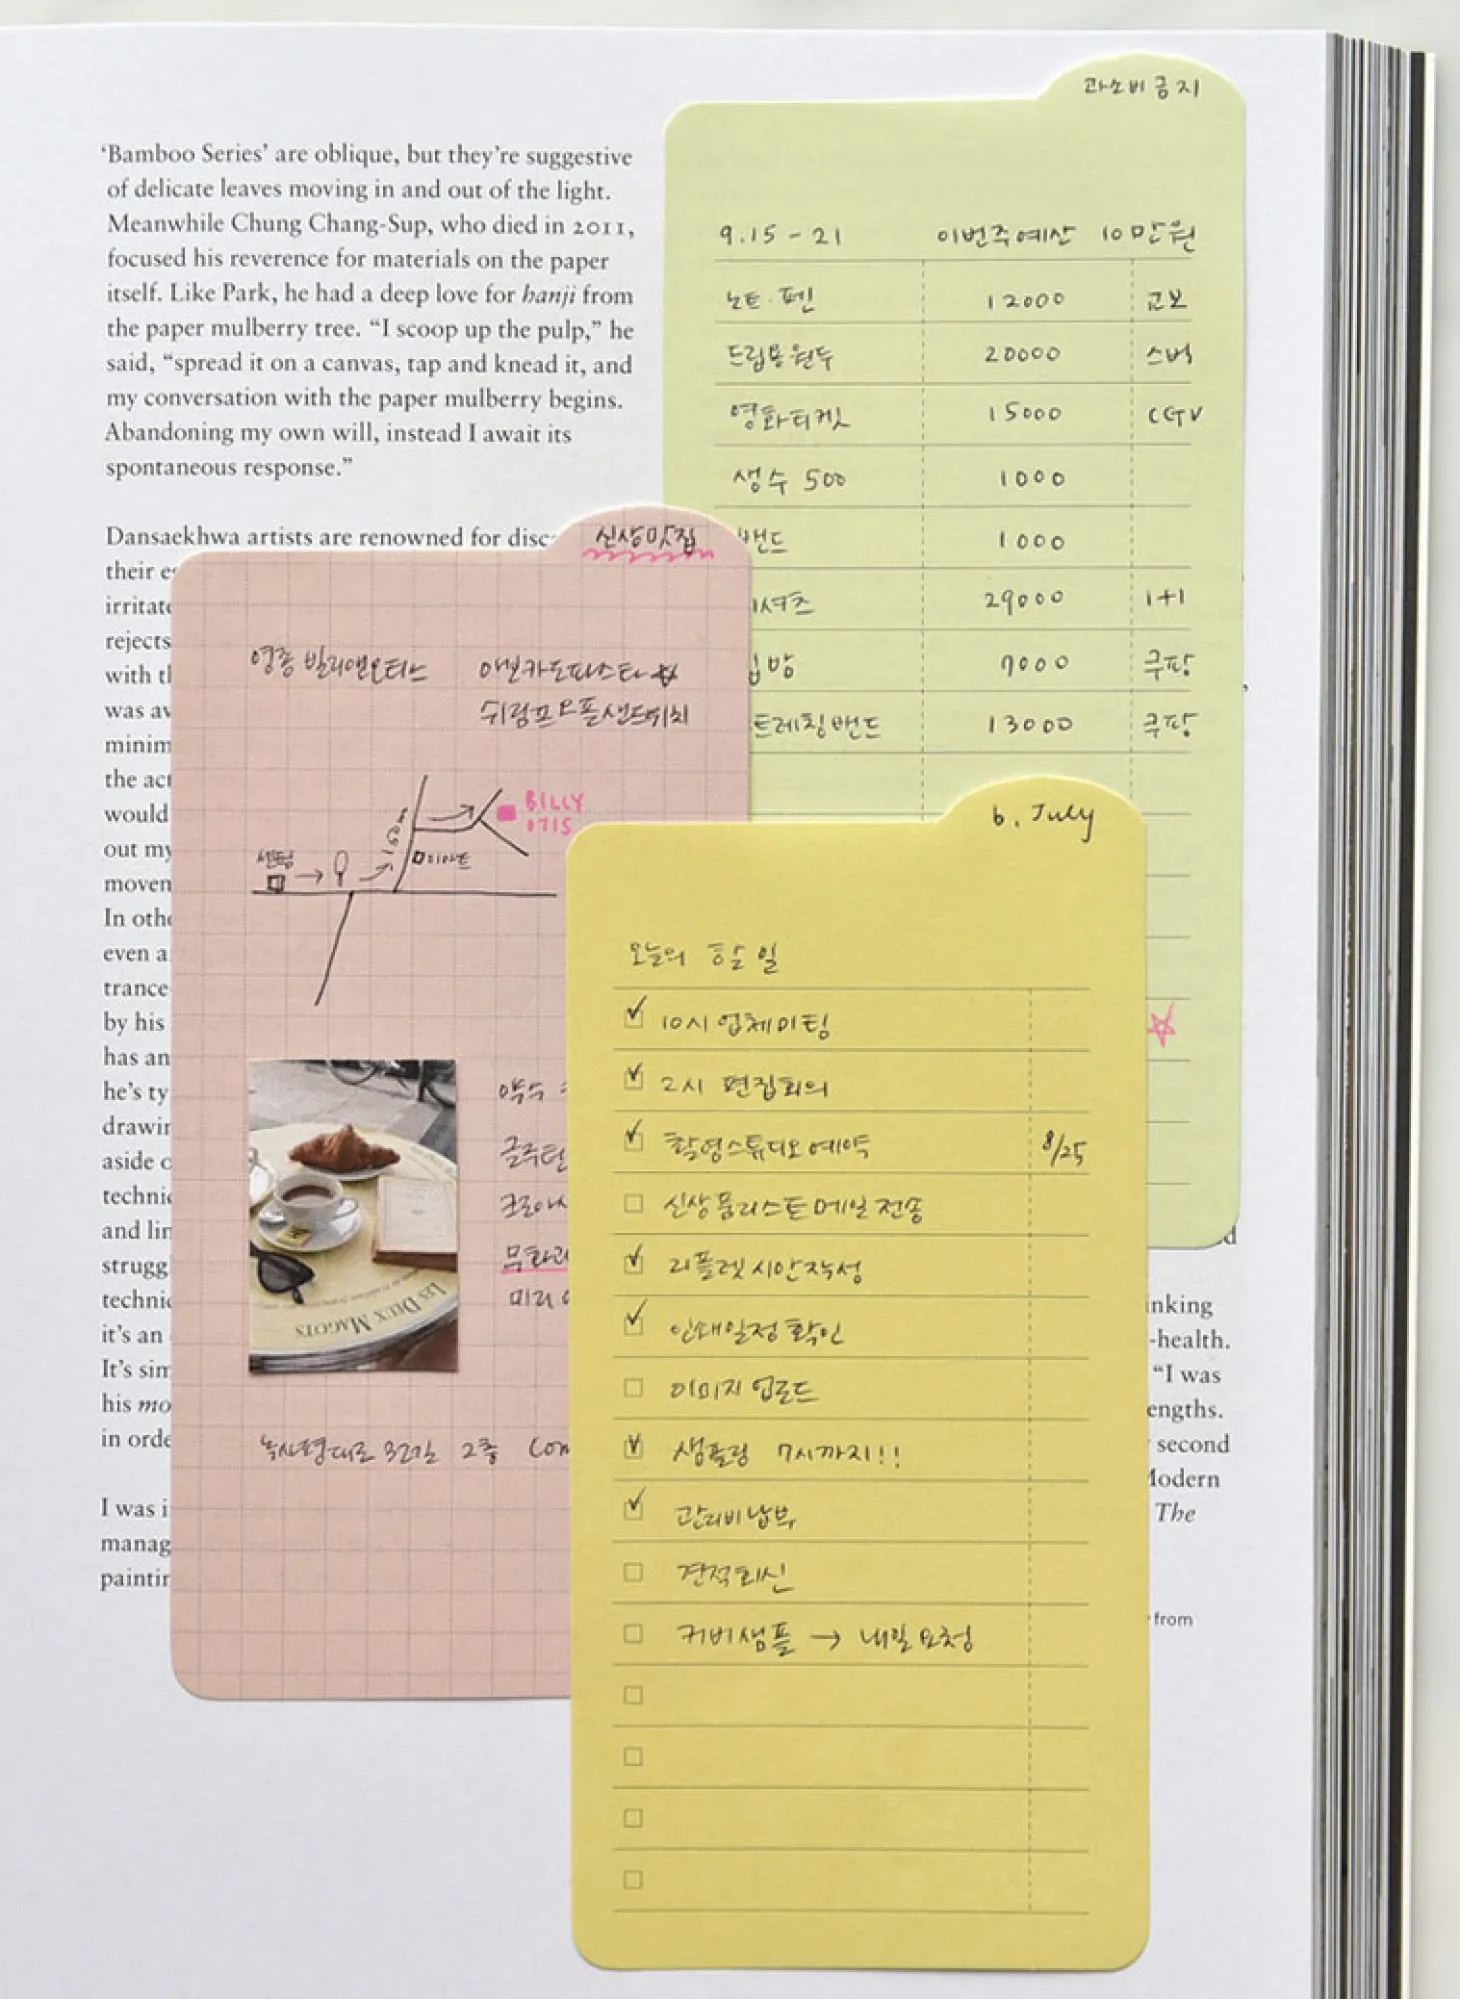 ‘Bamboo Series’ are oblique, but they’re suggestive
of delicate leaves moving in and out of the light.
Meanwhile Chung Chang-Sup, who died in 2011,
focused his reverence for materials on the paper
itself. Like Park, he had a deep love for hanji from
the paper mulberry tree. “I scoop up the pulp,” he
said, “spread it on a canvas, tap and knead it, and
my conversation with the paper mulberry begins.
Abandoning my own will, instead I await its
spontaneous response.”
Dansaekhwa artists are renowned for disc
their e
irritate
rejects
with th
was av
minim
the act
would
out my
movem
In othe
even a
trance
by his
has an
he’s ty
drawin
aside o
technic
and lin
struggl
technic
it’s an
It’s sim
his mo
in orde
I was i
manag
paintin
과소비금지
9.15 - 21 이번주예산 10만원
노트·펜 12000 교보
드립용원두 20000 스벅
영화티켓 15000 CGV
생수 500 1000
밴드 1000
셔츠 29000 1+1
7000 쿠팡
트레칭밴드 13000 쿠팡
신상맛집
빌리앤오티스 아보카도파스타
쉬림프오픈샌드위치
BILLY
OTIS
LES DEUX MAGOTS
글루텐
크로아
무화과
미리
녹사평대로32길 2층 Com
6. July
오늘의 할 일
10시 업체미팅
2시 편집회의
촬영스튜디오예약 8/25
신상품리스트메일전송
리플렛시안작성
인쇄일정확인
이미지 업로드
샘플링 7시까지!!
관리비납부
견적회신
커버샘플 → 내일요청
d
inking
-health.
“I was
engths.
second
Modern
The
from